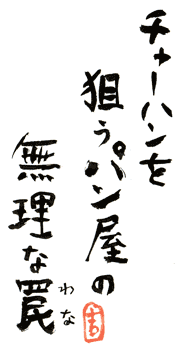 チャーハンを
狙う。パン屋の
無理な罠
わな